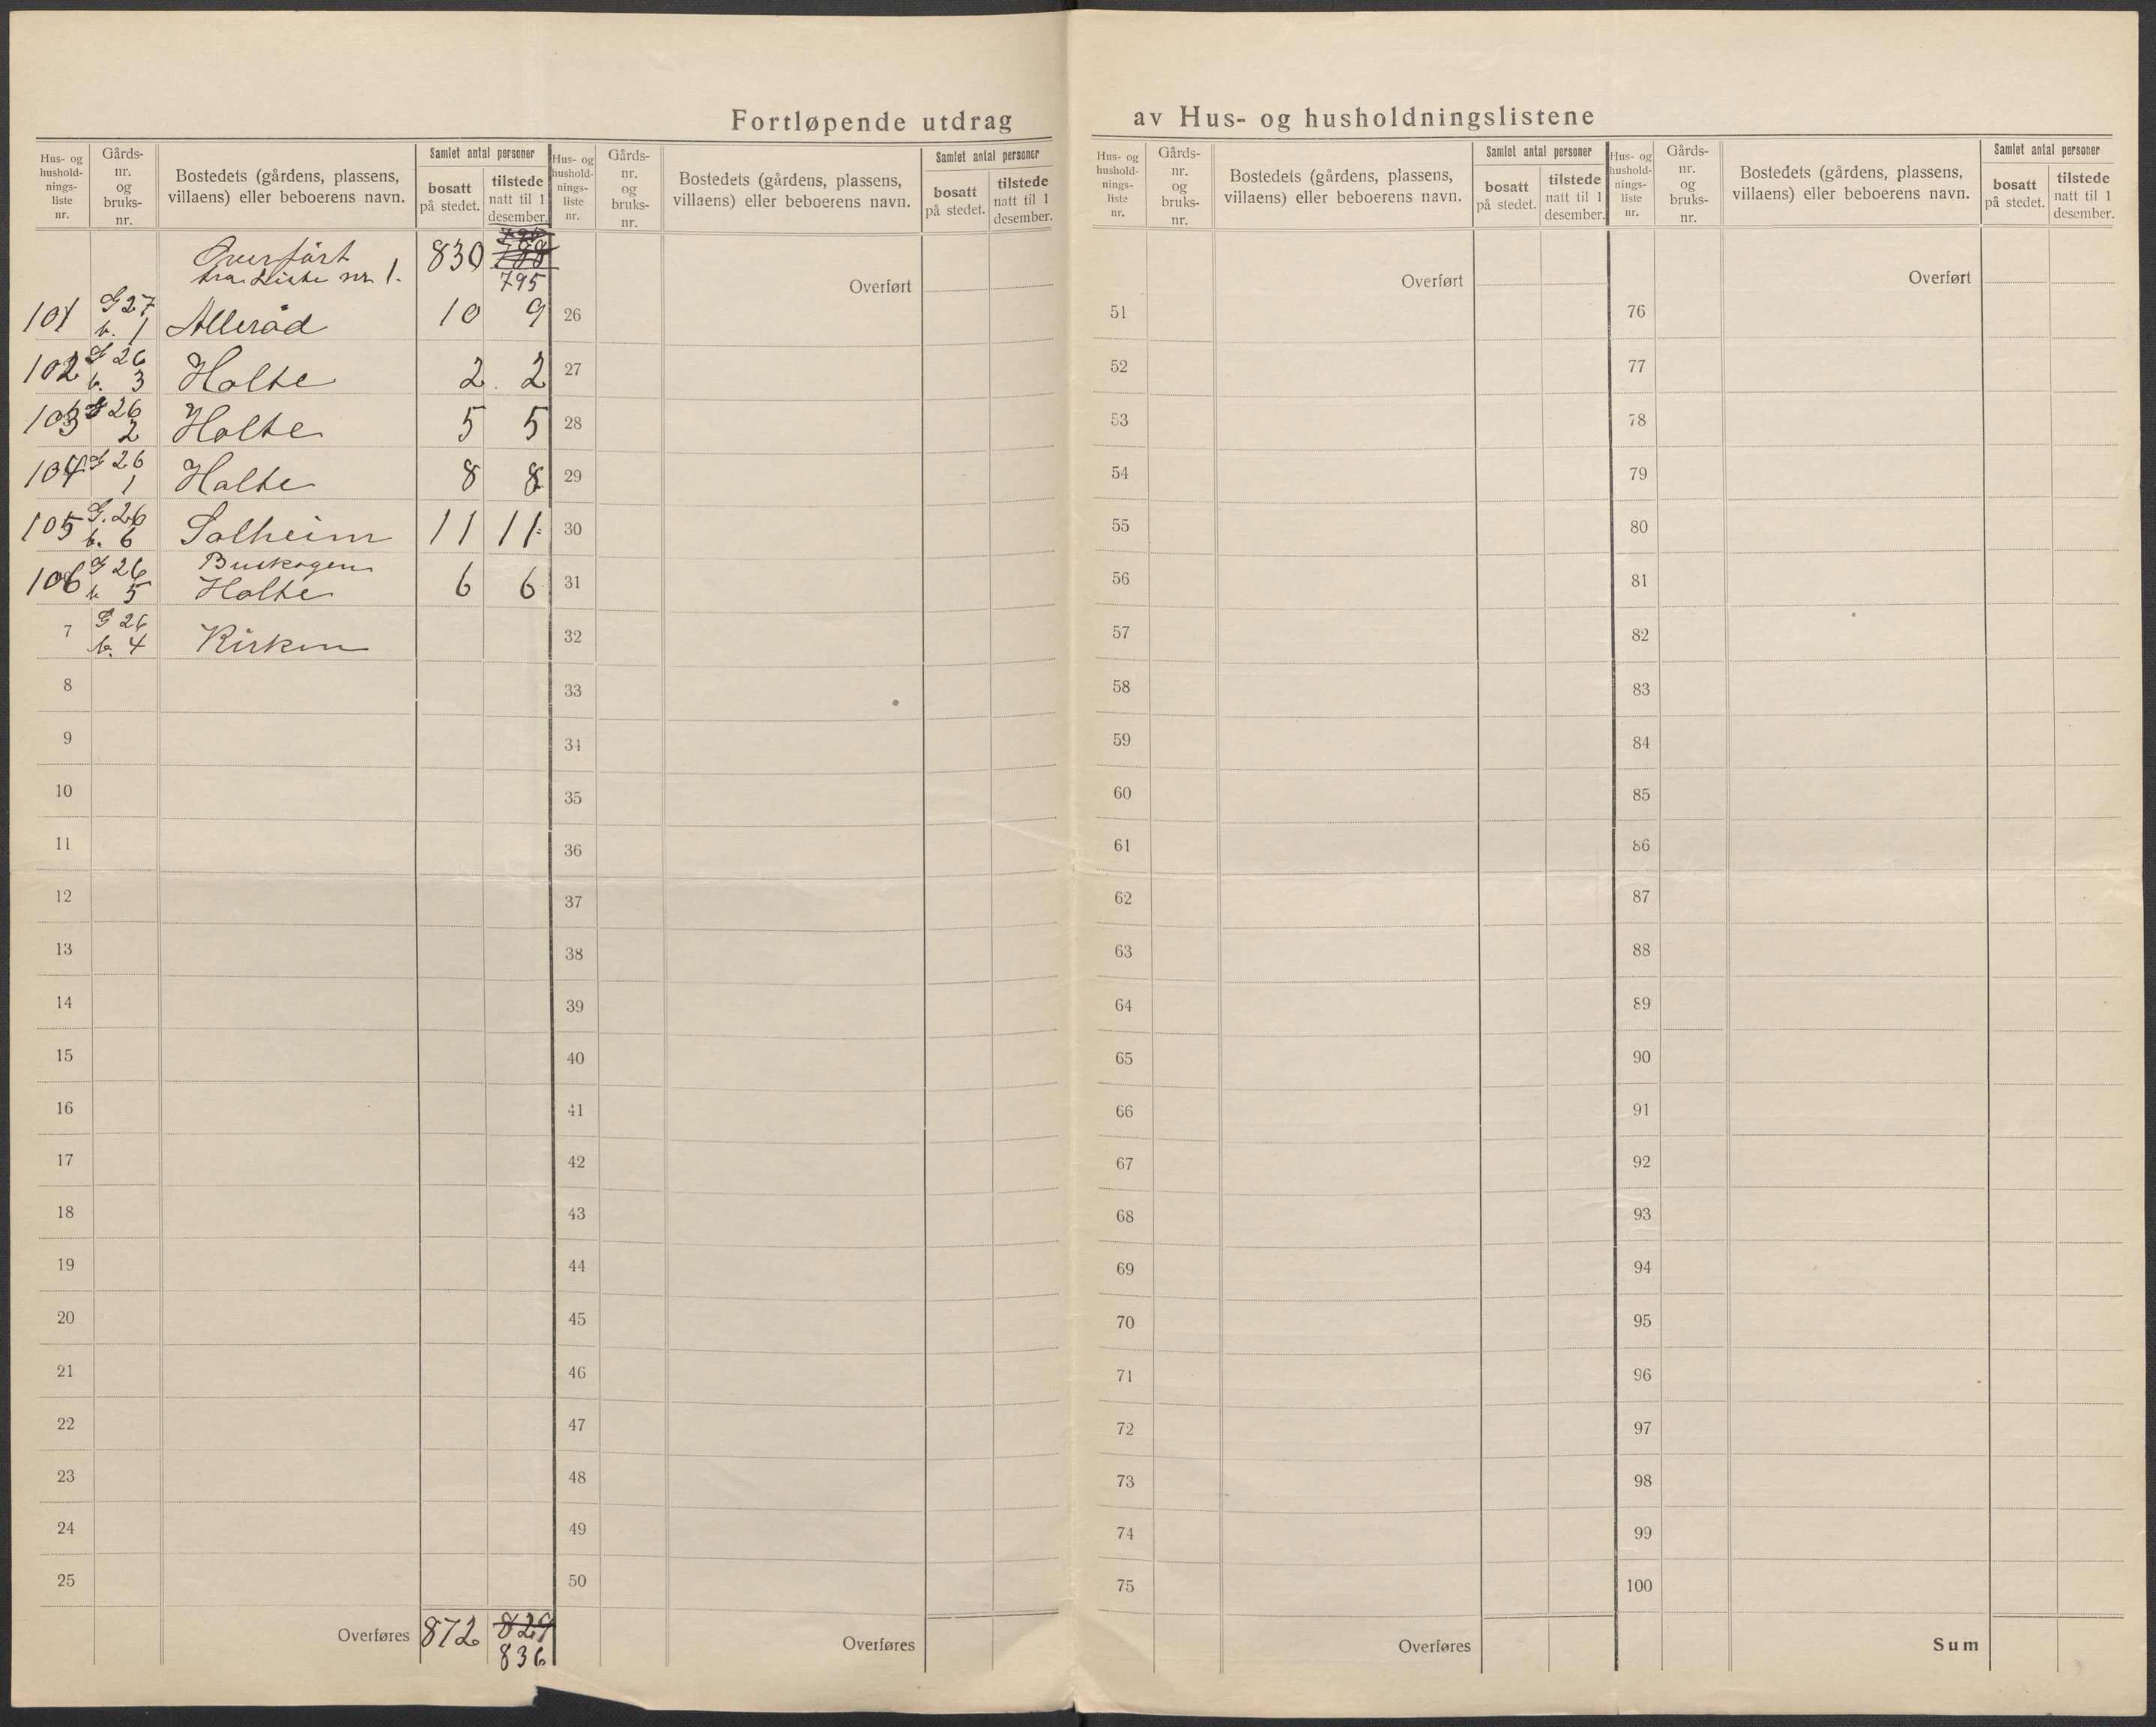 Fortløpende utdrag av Hus- og husholdningslistene
Hus- og
hushold-
nings-
liste
nr.
Gårds-
nr.
og
bruks-
nr.
Bostedets (gårdens, plassens,
villaens) eller beboerens navn.
Samlet antal personer
bosatt
på stedet.
tilstede
natt til 1
desember.
Overført
fra Liste nr 1. 830 788
795
101 G 27 b. 1 Alleröd 10 9
102 G 26 b. 3 Holte 2 2
103 G 26 2 Holte 5 5
104 G 26 1 Holte 8 8
105 G. 26 b. 6 Solheim 11 11
106 G 26 b. 5 Buskogen
Holte 6 6
7 G 26 b. 4 Kirken
8
9
10
11
12
13
14
15
16
17
18
19
20
21
22
23
24
25
Overføres 872 829
836
Hus- og
hushold-
nings-
liste
nr.
Gårds-
nr.
og
bruks-
nr.
Bostedets (gårdens, plassens,
villaens) eller beboerens navn.
Samlet antal personer
bosatt
på stedet.
tilstede
natt til 1
desember.
Overført
26
27
28
29
30
31
32
33
34
35
36
37
38
39
40
41
42
43
44
45
46
47
48
49
50
Overføres
Hus- og
hushold-
nings-
liste
nr.
Gårds-
nr.
og
bruks-
nr.
Bostedets (gårdens, plassens,
villaens) eller beboerens navn.
Samlet antal personer
bosatt
på stedet.
tilstede
natt til 1
desember.
Overført
51
52
53
54
55
56
57
58
59
60
61
62
63
64
65
66
67
68
69
70
71
72
73
74
75
Overføres
Hus- og
hushold-
nings-
liste
nr.
Gårds-
nr.
og
bruks-
nr.
Bostedets (gårdens, plassens,
villaens) eller beboerens navn.
Samlet antal personer
bosatt
på stedet.
tilstede
natt til 1
desember.
Overført
76
77
78
79
80
81
82
83
84
85
86
87
88
89
90
91
92
93
94
95
96
97
98
99
100
Sum